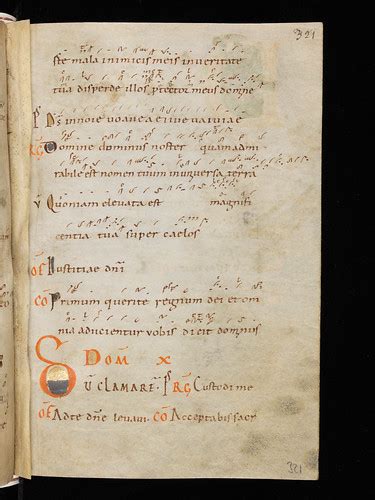 321
ste mala inimicis meis inveritate
tua disperde illos, ptector meus domne
Ps Ds innoie
RG Domine dominus noster quamadmi
rabile est nomen tuum inuniversa terra
V Quoniam elevata est magnifi
centia tua super caelos
OF Iustitiae dni
CO Primum querite regnum dei et om
nia adicientur vobis dicit dominus
DOM X
CUCLAMARE RG Custodi me
OF Adte dne levavi. CO Acceptabis sacr
321